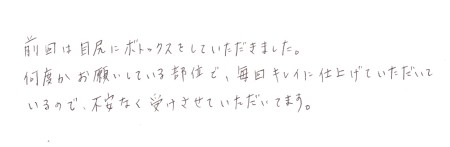 前回は目尻にボトックスをしていただきました。
何度かお願いしている部位で、毎回キレイに仕上げていただいて
いるので、不安なく受けさせていただいてます。